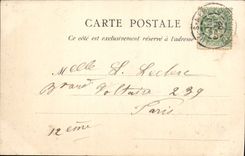 CARTE POSTALE
Ce côté est exclusivement réservé à l'adresse
Melle H. Leclerc
Boulevard Voltaire 239
Paris
12ème